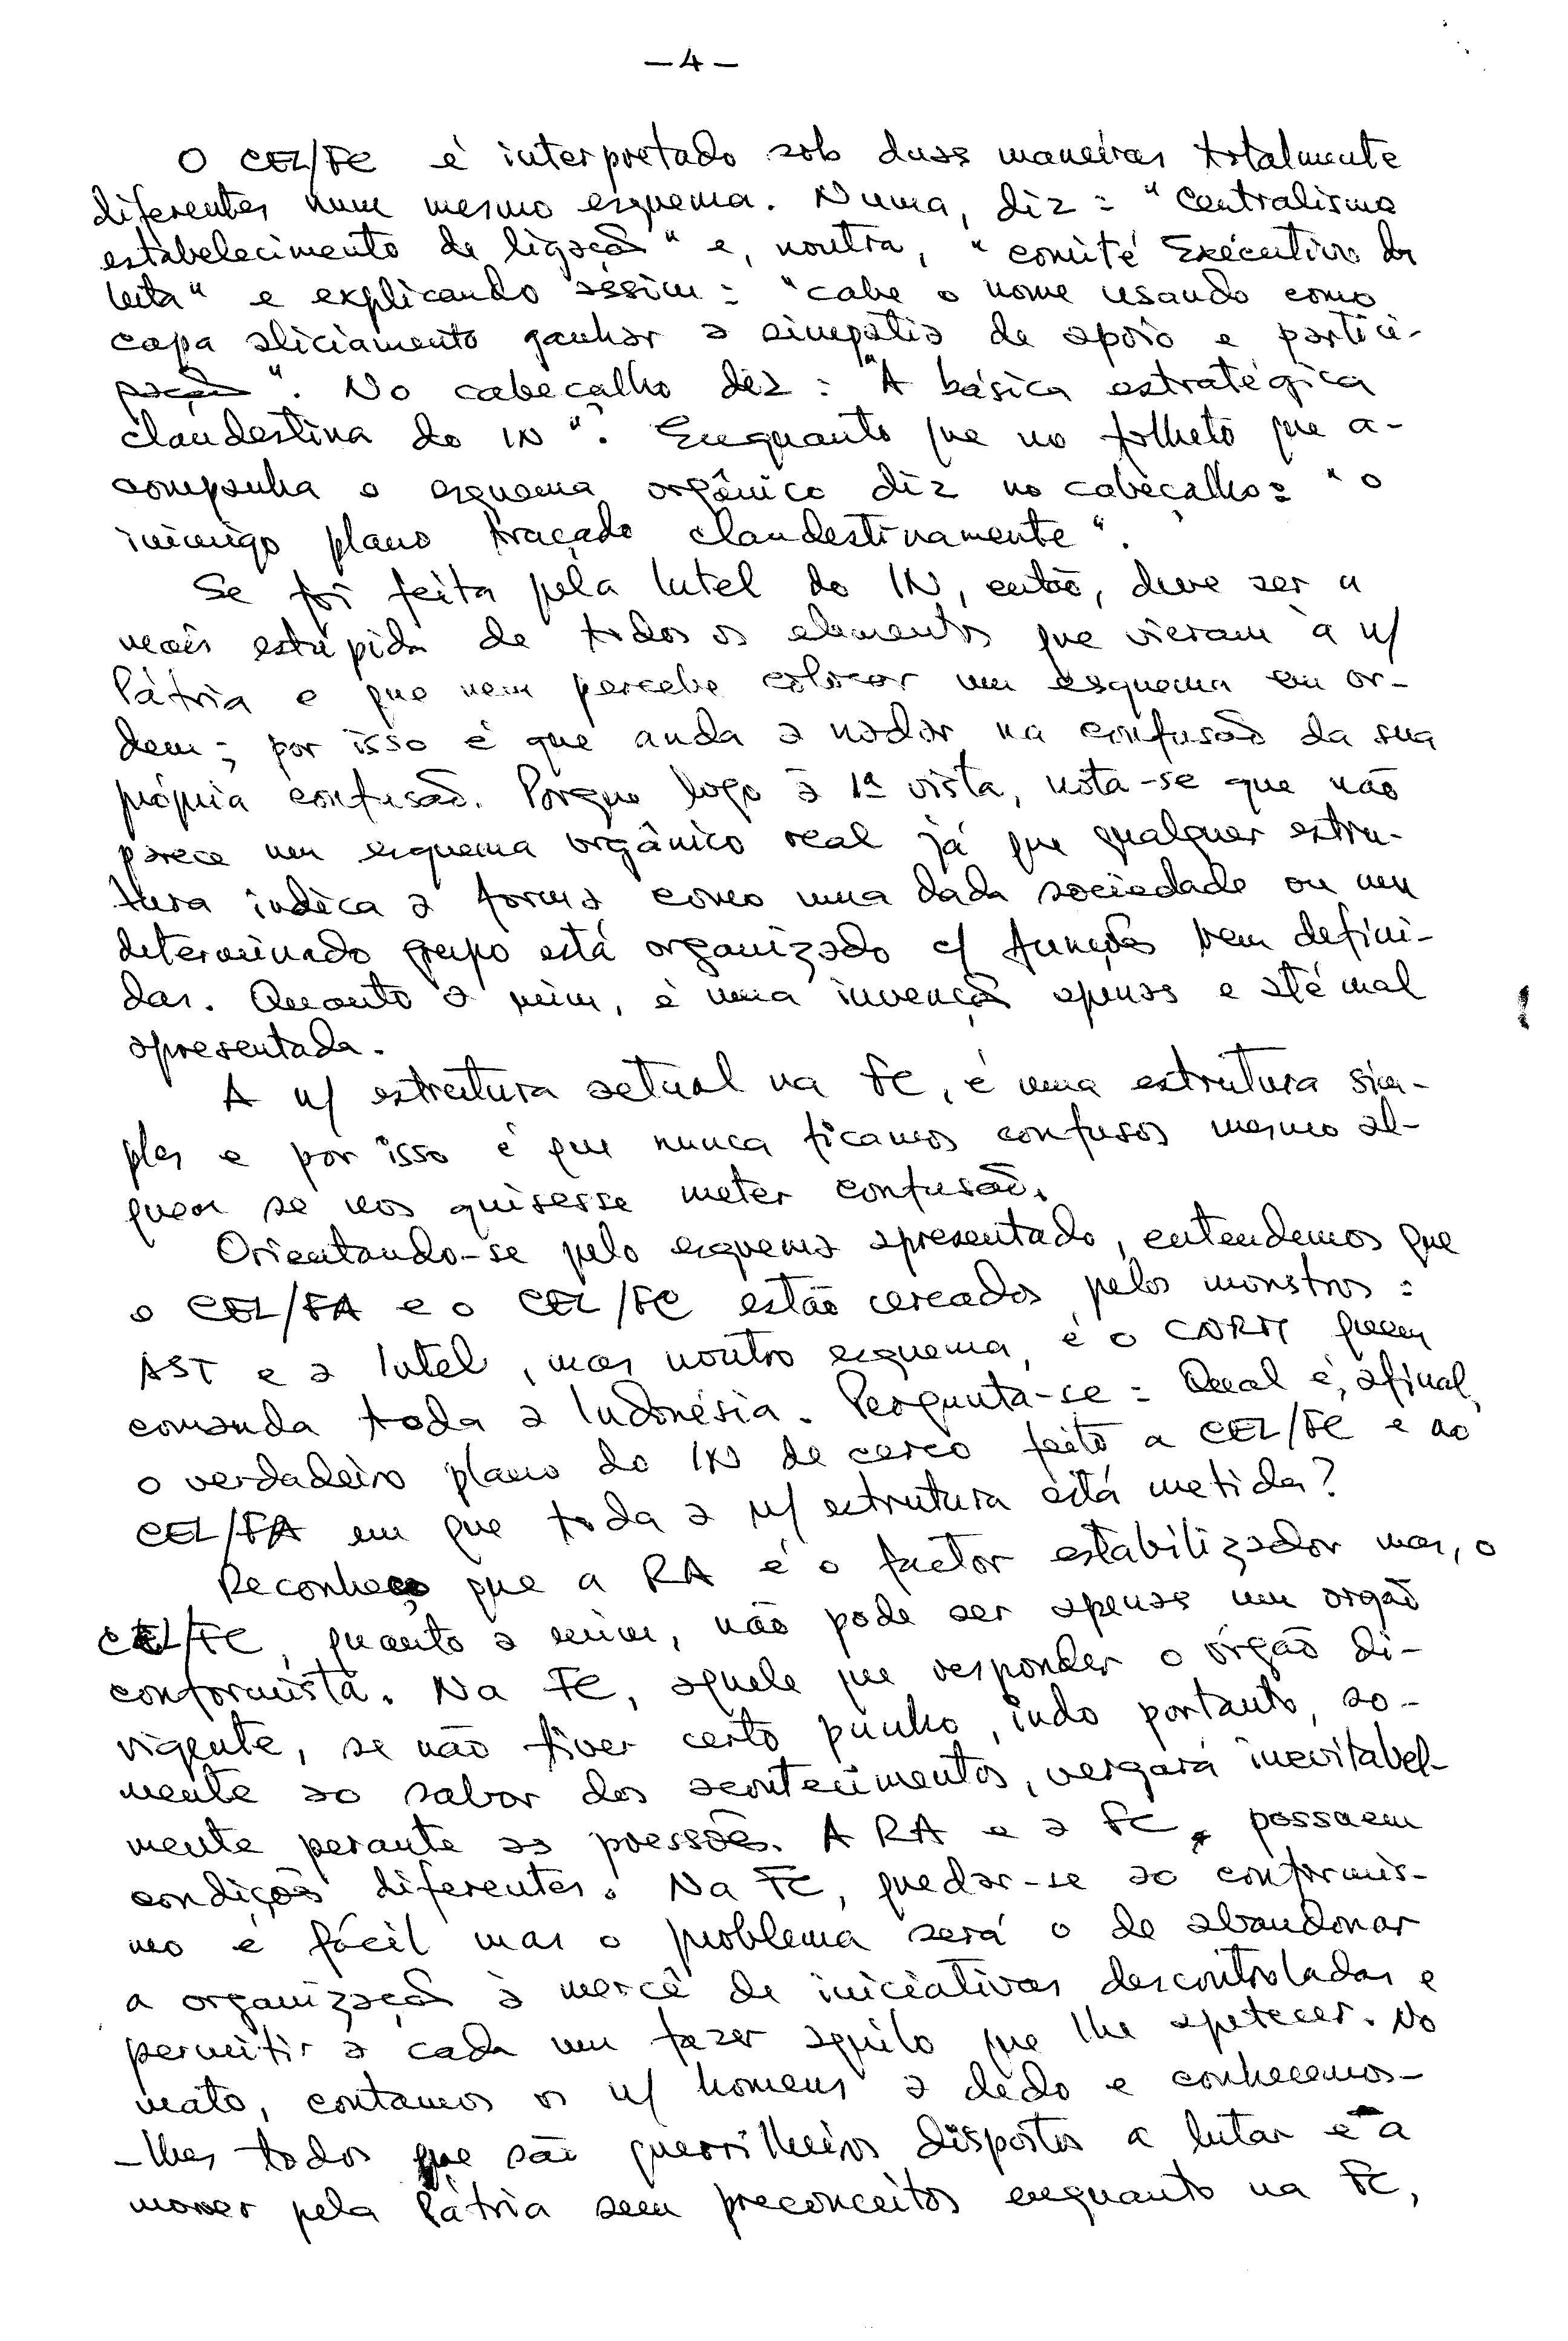 — 4 —
O CEL/FC é interpretado sob duas maneiras totalmente
diferentes num mesmo esquema. Numa, diz: "Centralismo
estabelecimento de ligação" e, noutra, "comité Executivo da
luta" e explicando assim: "cabe o nome usando como
capa aliciamento ganhar a simpatia de apoio e partici-
pação". No cabeçalho diz: "A básica estratégica
clandestina do IN". Enquanto que no folheto que a-
companha o esquema orgânico diz no cabeçalho: "o
inimigo plano traçado clandestinamente".
Se foi feita pela Intel do IN, então, deve ser a
mais estúpida de todos os elementos que vieram à n/
Pátria e que nem percebe colocar um esquema em or-
dem; por isso é que anda a nadar na confusão da sua
própria confusão. Porque logo à 1ª vista, nota-se que não
parece um esquema orgânico real já que qualquer estru-
tura indica a forma como uma dada sociedade ou um
determinado grupo está organizado c/ funções bem defini-
das. Quanto a mim, é uma invenção apenas e até mal
apresentada.
A n/ estrutura actual na FC, é uma estrutura sim-
ples e por isso é que nunca ficamos confusos mesmo al-
guem se nos quisesse meter confusão.
Orientando-se pelo esquema apresentado, entendemos que
o CEL/FA e o CEL/FC estão cercados pelos monstros:
AST e a Intel, mas noutro esquema, é o CNRM quem
comanda toda a Indonésia. Pergunta-se: Qual é, afinal,
o verdadeiro plano do IN de cerco feito a CEL/FC e ao
CEL/FA em que toda a n/ estrutura está metida?
Reconheço que a RA é o factor estabilizador mas, o
CEL/FC, quanto a mim, não pode ser apenas um orgão
conformista. Na FC, aquele que responder o órgão di-
rigente, se não tiver certo punho, indo portanto, so-
mente ao sabor dos acontecimentos, vergará inevitabel-
mente perante as pressões. A RA e a FC, possuem
condições diferentes. Na FC, quedar-se ao conformis-
mo é fácil mas o problema será o de abandonar
a organização à mercê de iniciativas descontroladas e
permitir a cada um fazer aquilo que lhe apetecer. No
mato, contamos os n/ homens a dedo e conhecemos-
-lhes todos que são guerrilheiros dispostos a lutar e a
morrer pela Pátria sem preconceitos enquanto na FC,